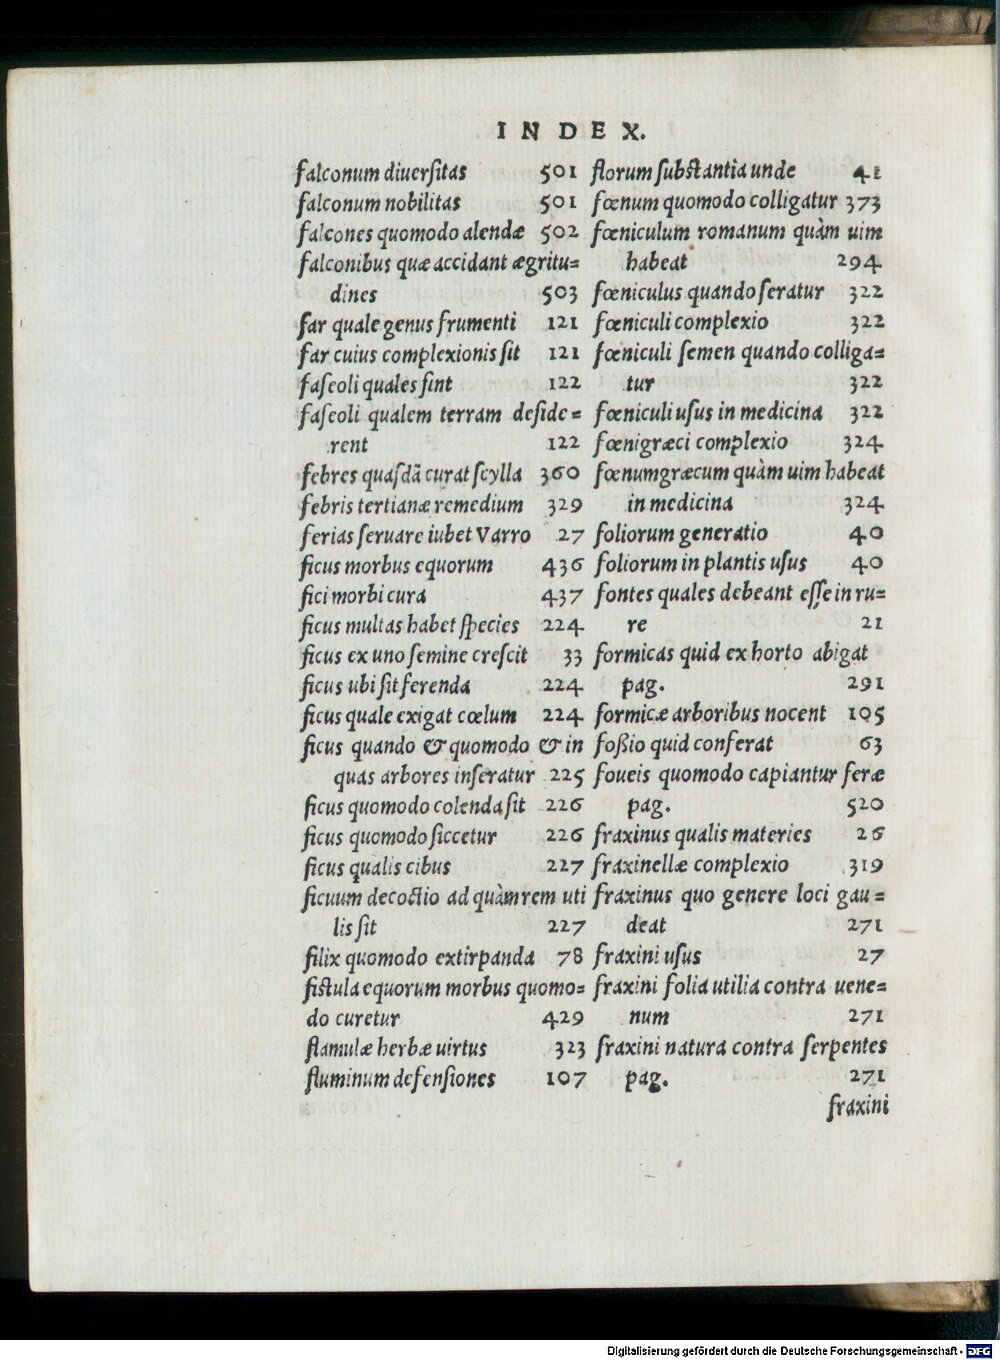 INDEX.
falconum diuerſitas 501
falconum nobilitas 501
falcones quomodo alendæ 502
falconibus quæ accidant ægritu=
dines 503
far quale genus frumenti 121
far cuius complexionis ſit 121
faſeoli quales ſint 122
faſeoli qualem terram deſide=
rent 122
febres quaſdā curat ſcylla 360
febris tertianæ remedium 329
ferias ſeruare iubet Varro 27
ficus morbus equorum 436
fici morbi cura 437
ficus multas habet ſpecies 224
ficus ex uno ſemine creſcit 33
ficus ubi ſit ferenda 224
ficus quale exigat cœlum 224
ficus quando & quomodo & in
quas arbores inſeratur 225
ficus quomodo colenda ſit 226
ficus quomodo ſiccetur 226
ficus qualis cibus 227
ficuum decoctio ad quàm rem uti
lis ſit 227
filix quomodo extirpanda 78
fiſtula equorum morbus quomo=
do curetur 429
flamulæ herbæ uirtus 323
fluminum defenſiones 107
florum ſubſtantia unde 41
fœnum quomodo colligatur 373
fœniculum romanum quàm uim
habeat 294
fœniculus quando ſeratur 322
fœniculi complexio 322
fœniculi ſemen quando colliga=
tur 322
fœniculi uſus in medicina 322
fœnigræci complexio 324
fœnumgræcum quàm uim habeat
in medicina 324
foliorum generatio 40
foliorum in plantis uſus 40
fontes quales debeant eſſe in ru=
re 21
formicas quid ex horto abigat
pag. 291
formicæ arboribus nocent 105
foßio quid conferat 63
foueis quomodo capiantur feræ
pag. 520
fraxinus qualis materies 26
fraxinellæ complexio 319
fraxinus quo genere loci gau=
deat 271
fraxini uſus 27
fraxini folia utilia contra uene=
num 271
fraxini natura contra ſerpentes
pag. 271
fraxini
Digitalisierung gefördert durch die Deutsche Forschungsgemeinschaft - DFG